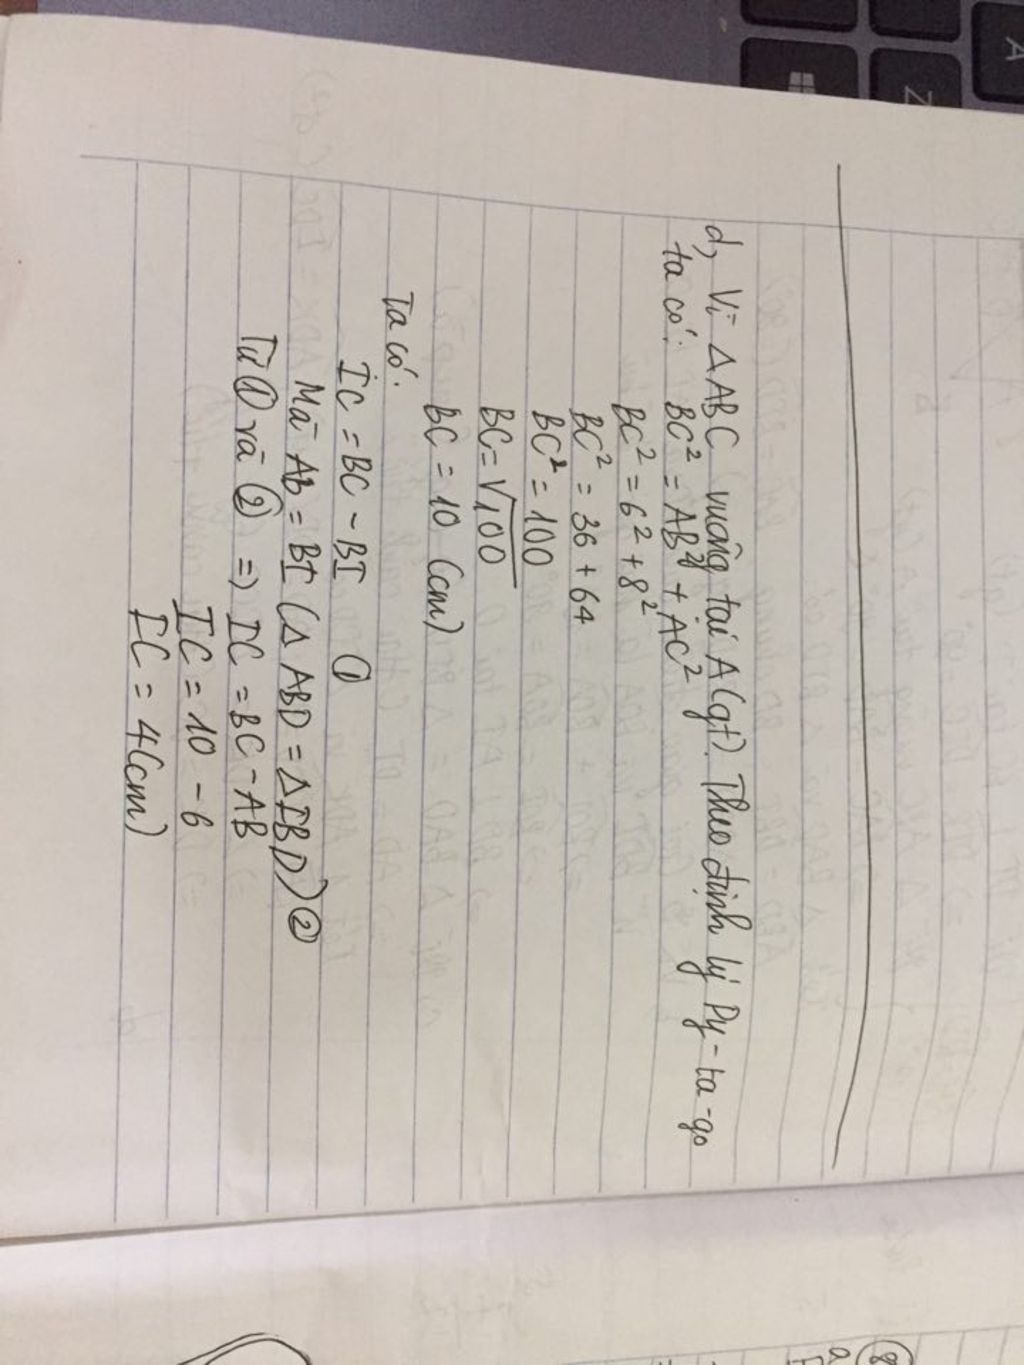 d, Vì △ABC vuông tại A(gt). Theo định lý Py-ta-go
ta có: BC² = AB² + AC²
BC² = 6² + 8²
BC² = 36 + 64
BC² = 100
BC = √100
BC = 10 (cm)
Ta có:
IC = BC - BI ①
Mà AB = BI (△ABD = △IBD) ②
Từ ① và ② => IC = BC - AB
IC = 10 - 6
IC = 4(cm)
A
Z
8
a